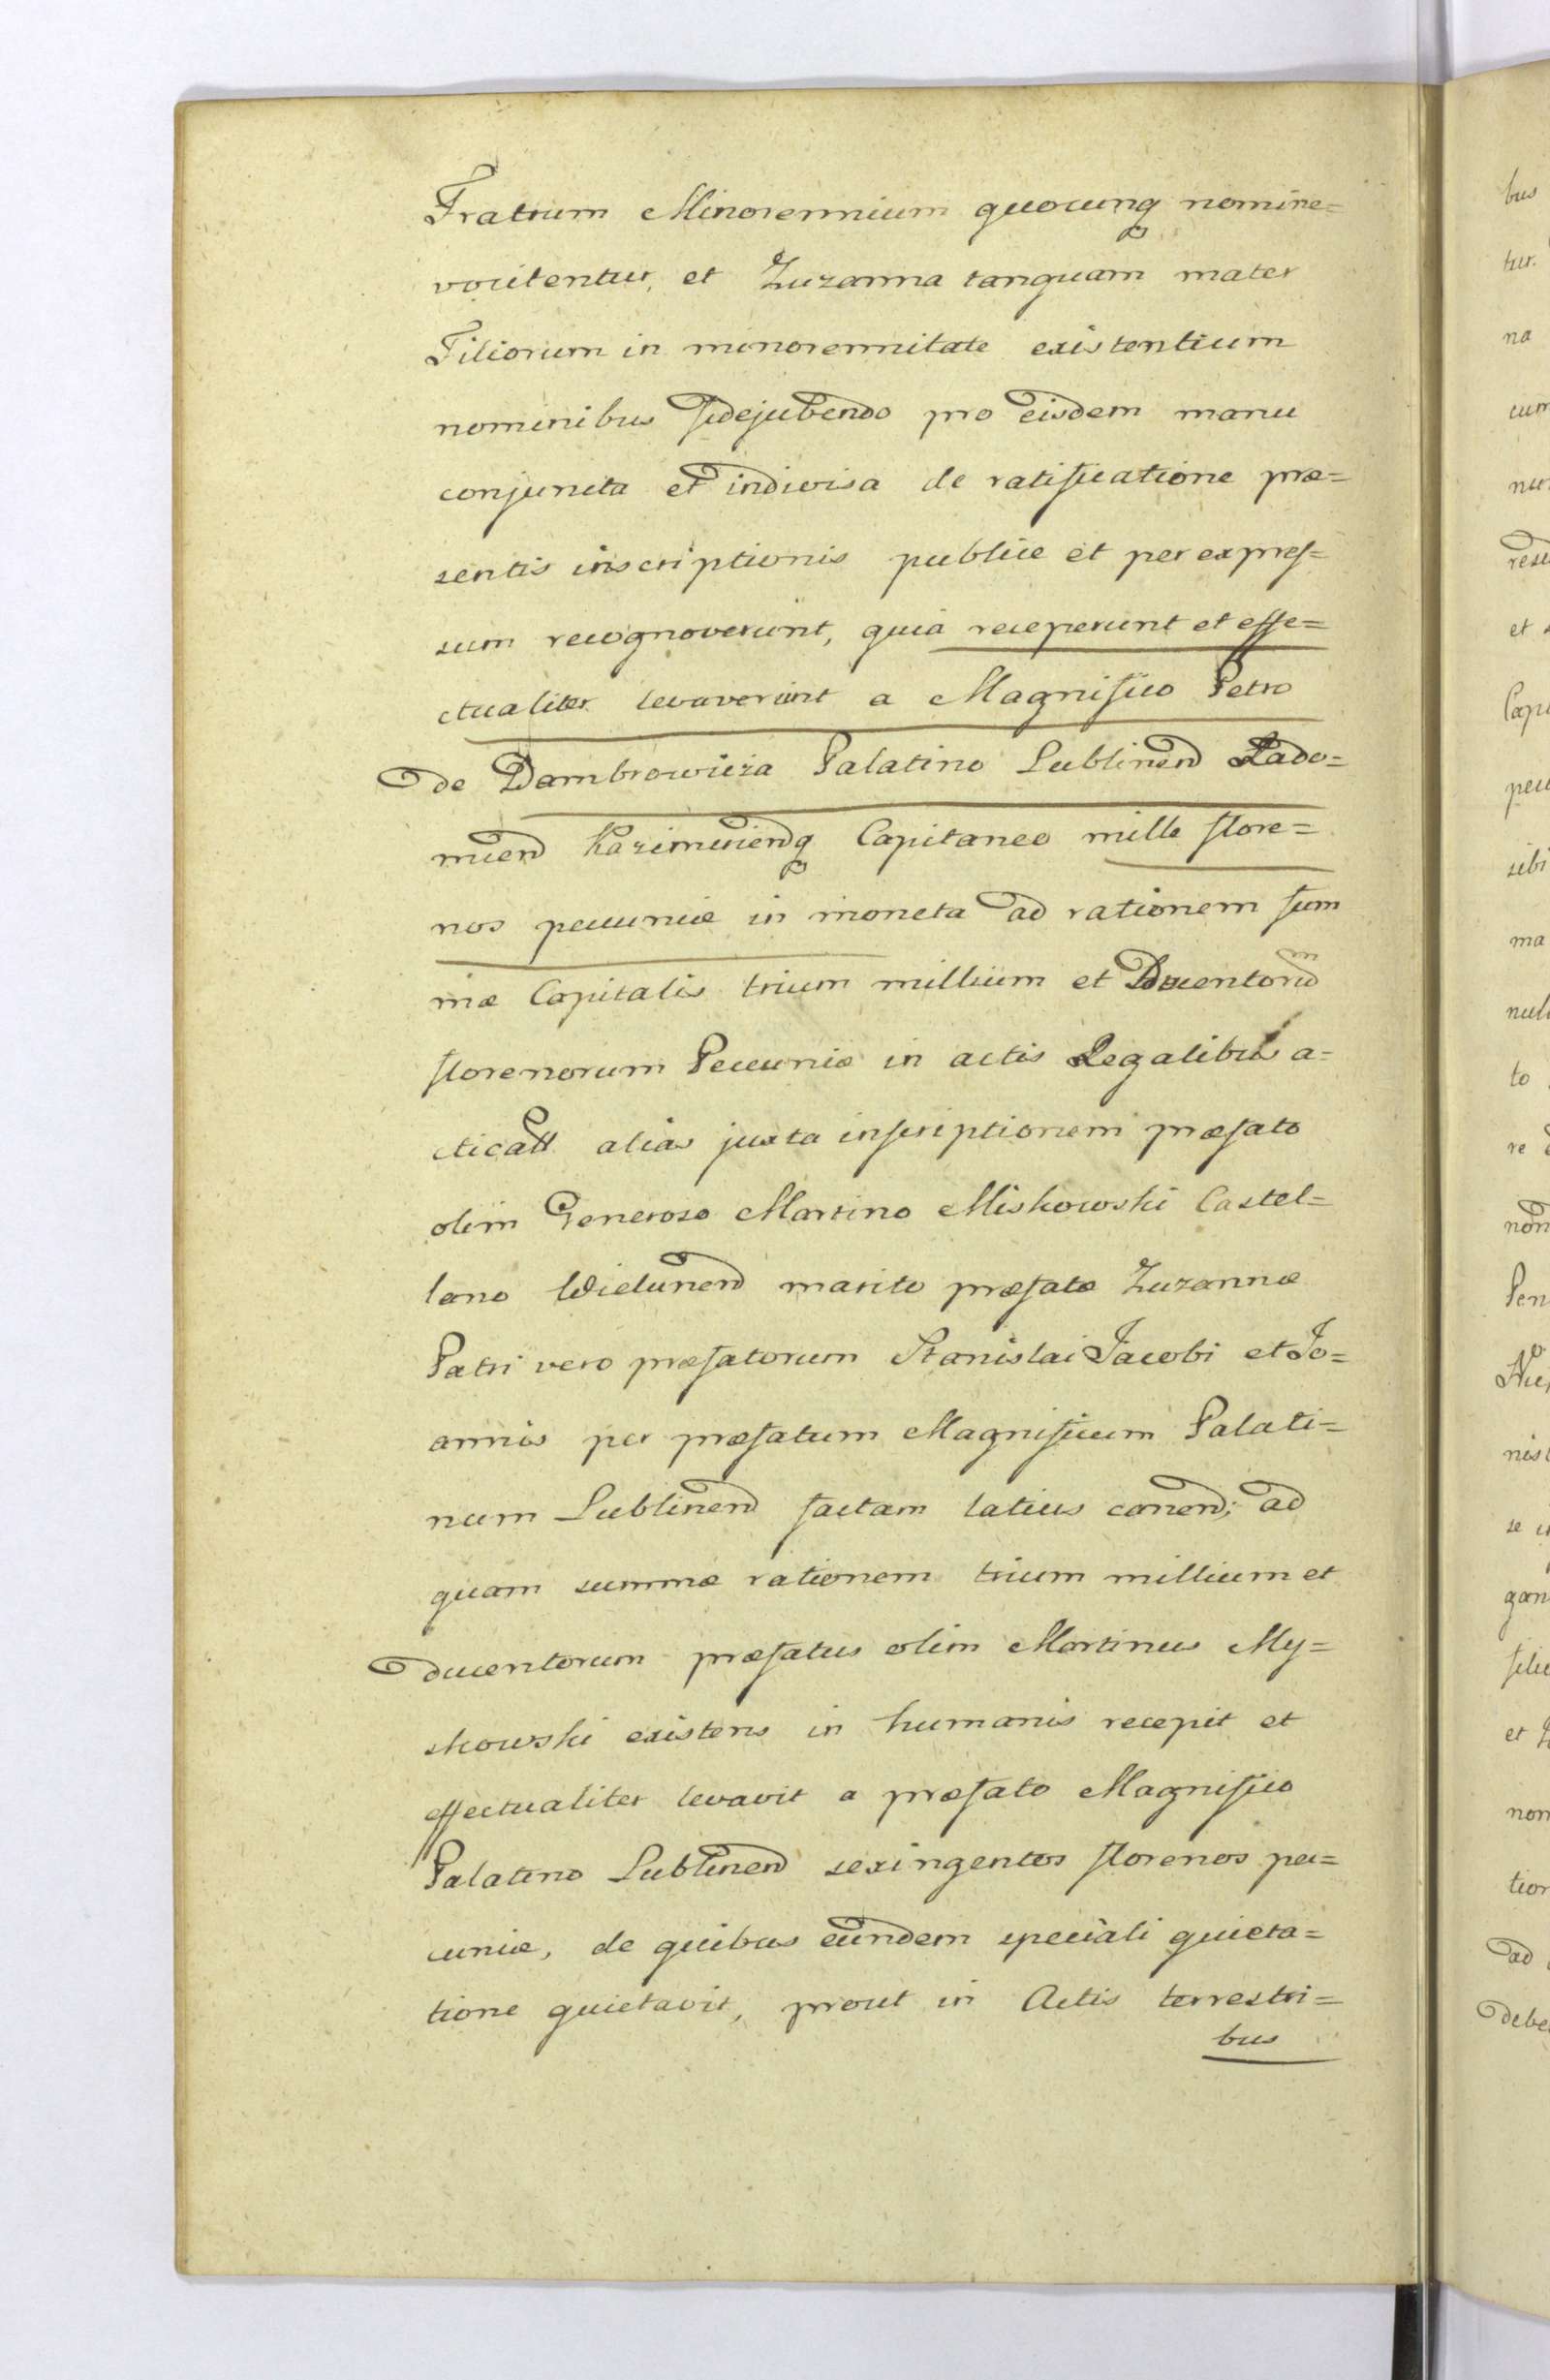 Fratrum Minorennium quocunq nomine=
vocitentur, et Zuzanna tanquam mater
Filiorum in minorennitate existentium
nominibus fidejubendo pro eisdem manu
conjuncta et indivisa de ratificatione præ=
sentis inscriptionis publice et per expres=
sum recognoverunt, quia receperunt et effe=
ctualiter levaverunt a Magnifico Petro
de Dambrowicza Palatino Lublinen Rado=
mien Kazimirienq Capitaneo mille flore=
nos pecuniæ in moneta ad rationem sum
mæ Capitalis trium millium et Ducentorum
florenorum Pecuniæ in actis Regalibus a=
cticatt alias juxta inscriptionem præfato
olim Generoso Martino Miskowski Castel=
lano Wielunen marito præfatæ Zuzannæ
Patri vero præfatorum Stanislai Jacobi et Jo=
annis per præfatum Magnificum Palati=
num Lublinen factam latius conen; ad
quam summæ rationem trium millium et
ducentorum præfatus olim Martinus My=
skowski existens in humanis recepit et
effectualiter levavit a præfato Magnifico
Palatino Lublinen sexingentos florenos pe=
cuniæ, de quibus eundem speciali quieta=
tione quietavit, prout in Actis terrestri=
bus
bus
tur.
na
cum
et
sibi
ma
to
re
et
ad